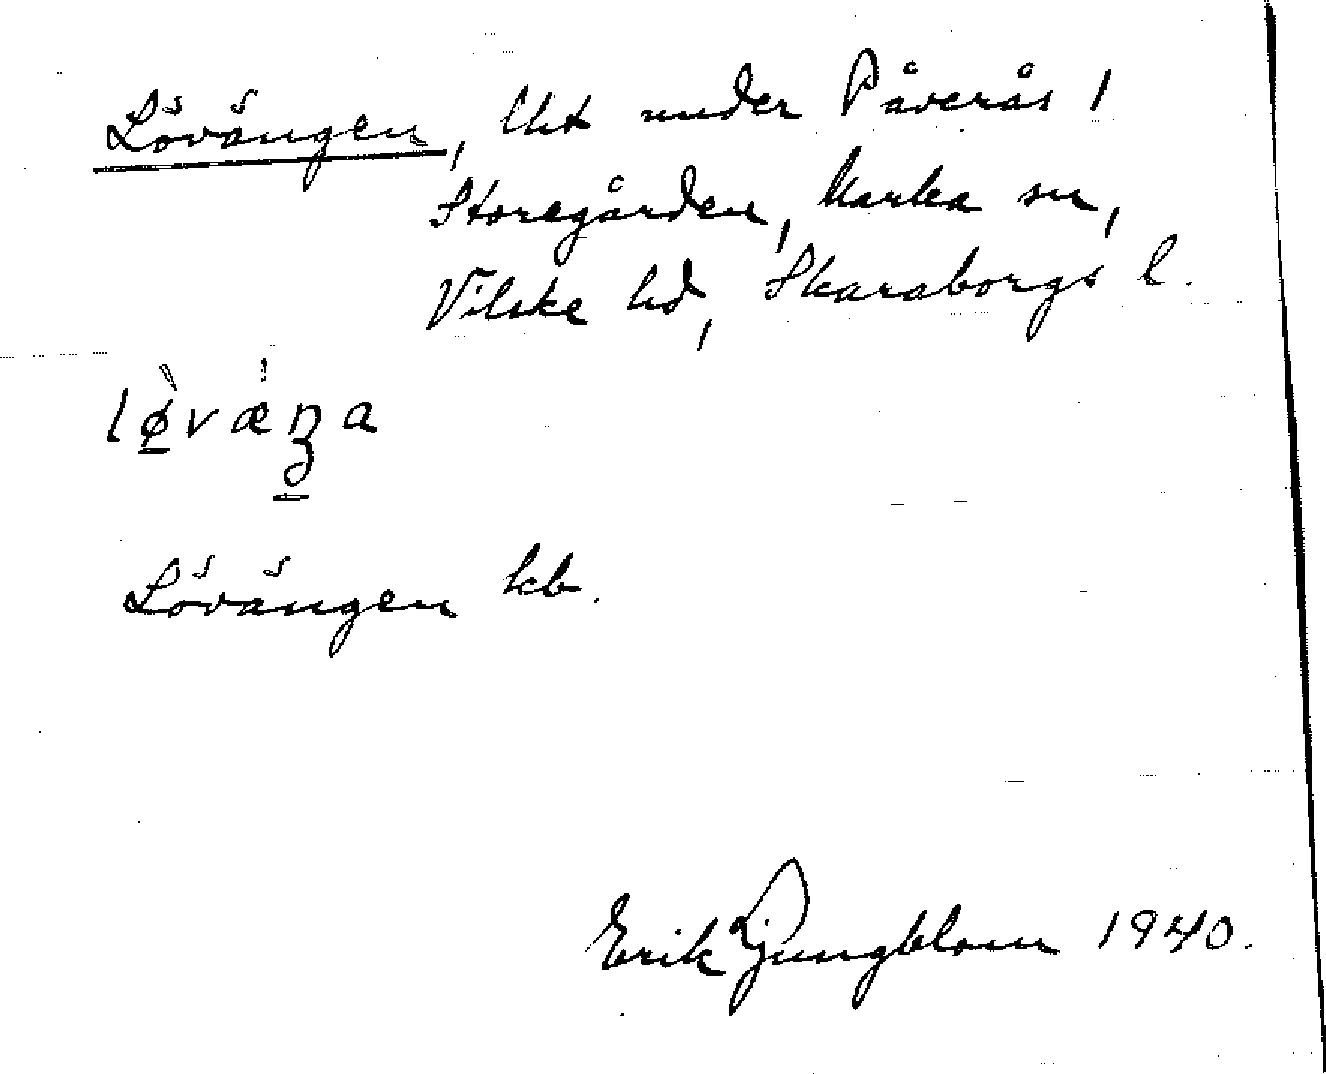 Lövängen, lht under Påverås 1
Storegården, Karka sn,
Vilske hd, Skaraborgs l.
lø̀vǽŋa
Lövängen kb.
Erik Ljungblom 1940.